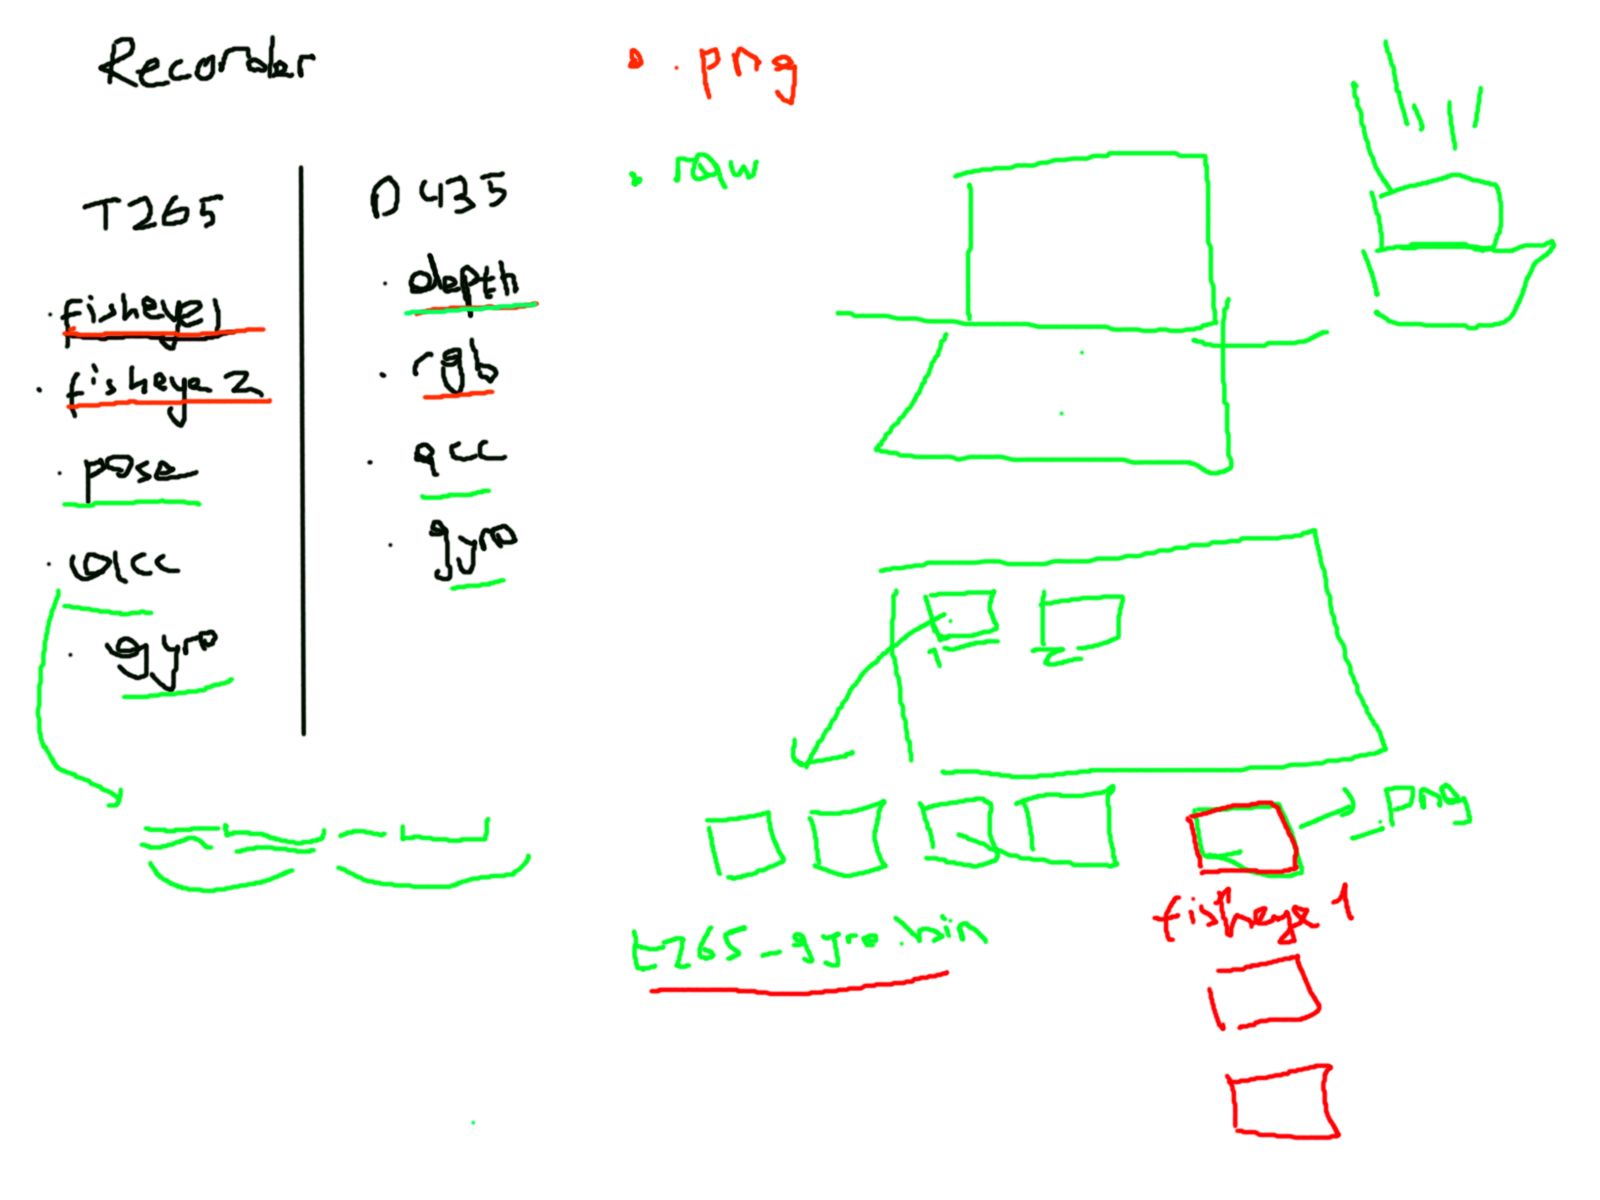 Recorder
T265
fisheye1
fisheye 2
pose
acc
gyro
D435
depth
rgb
acc
gyro
.png
raw
1
2
.png
t265_gyro.bin
fisheye 1